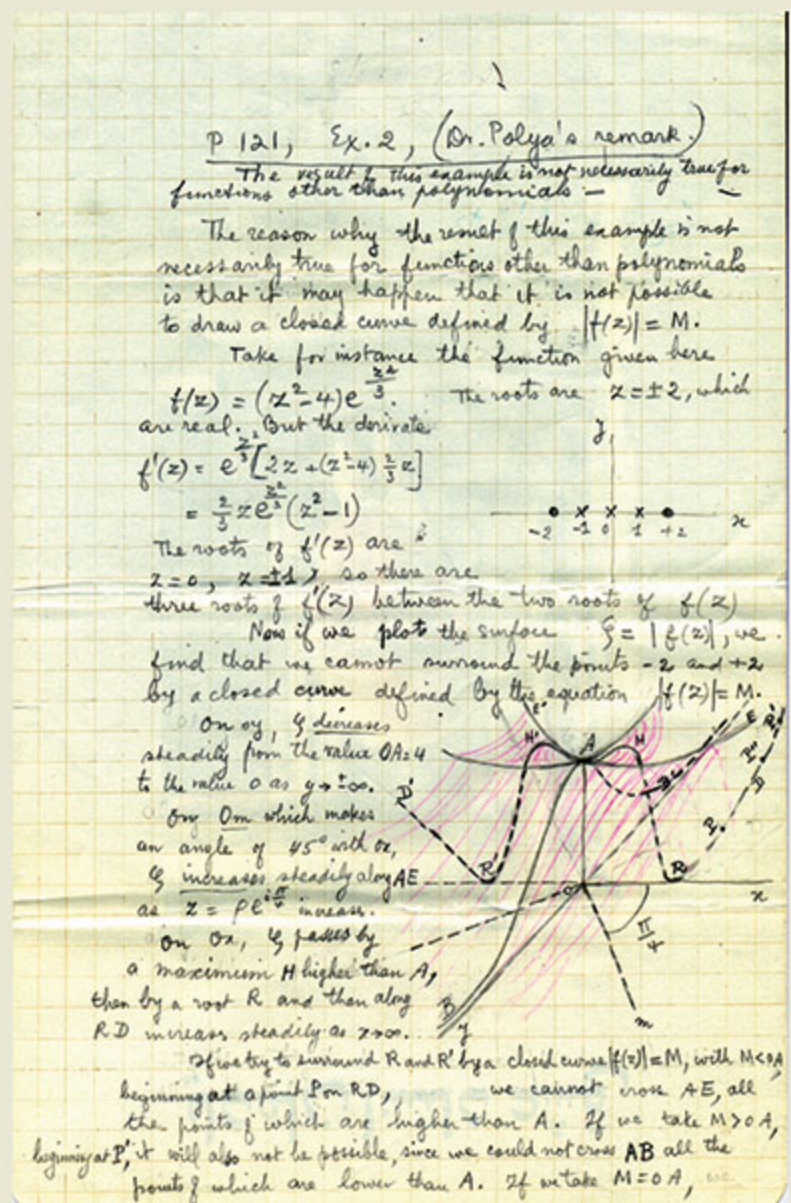 P 121, Ex. 2, (Dr. Polya's remark.)
The result of this example is not necessarily true for
functions other than polynomials —
The reason why the result of this example is not
necessarily true for functions other than polynomials
is that it may happen that it is not possible
to draw a closed curve defined by |f(z)| = M.
Take for instance the function given here
f(z) = (z²-4)e^{z²/3}. The roots are z = ±2, which
are real. But the derivate
y
f'(z) = e^{z²/3}[2z + (z²-4) 2/3 z]
= 2/3 z e^{z²/3} (z²-1)
-2 -1 0 1 +2 x
The roots of f'(z) are
z = 0, z = ±1, so there are
three roots of f'(z) between the two roots of f(z)
Now if we plots the surface ζ = |f(z)|, we
find that we cannot surround the points -2 and +2
by a closed curve defined by the equation |f(z)| = M.
On oy, ζ decreases
steadily from the value OA = 4
to the value 0 as y → ±∞.
On Om which makes
an angle of 45° with ox,
ζ increases steadily along AE
as z = ρe^{iπ/4} increase.
On Ox, ζ passes by
a maximum H higher than A,
then by a root R and then along
RD increases steadily as x→∞.
E' H' A H E
D' R' O R x
D
π/4
B y m
If we try to surround R and R' by a closed curve |f(z)| = M, with M < OA
beginning at a point P on RD, we cannot cross AE, all
the points of which are higher than A. If we take M > OA,
beginning at P', it will also not be possible, since we could not cross AB all the
points of which are lower than A. If we take M = OA, we